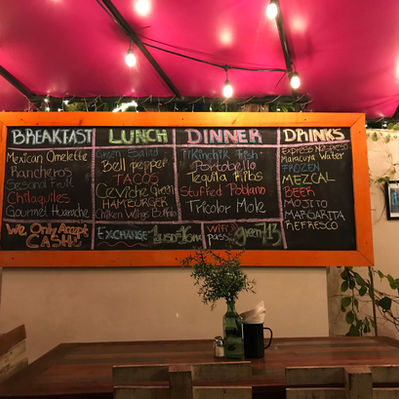 BREAKFAST
Mexican Omelette
Rancheros
Sesonal Fruit
Chilaquiles
Gourmet Huarache
LUNCH
Green Salad
Bell pepper
TACOS
Ceviche Green
HAMBURGER
Chiken Wings Buffalo
DINNER
Tikinchik fish
Portobello
Tequila Ribs
Stuffed Poblano
Tricolor Mole
DRINKS
Maracuya Water
FROZEN
MEZCAL
BEER
MOJITO
MARGARITA
REFRESCO
We Only Accept
CASH
EXCHANGE 1
WiFi
pass: